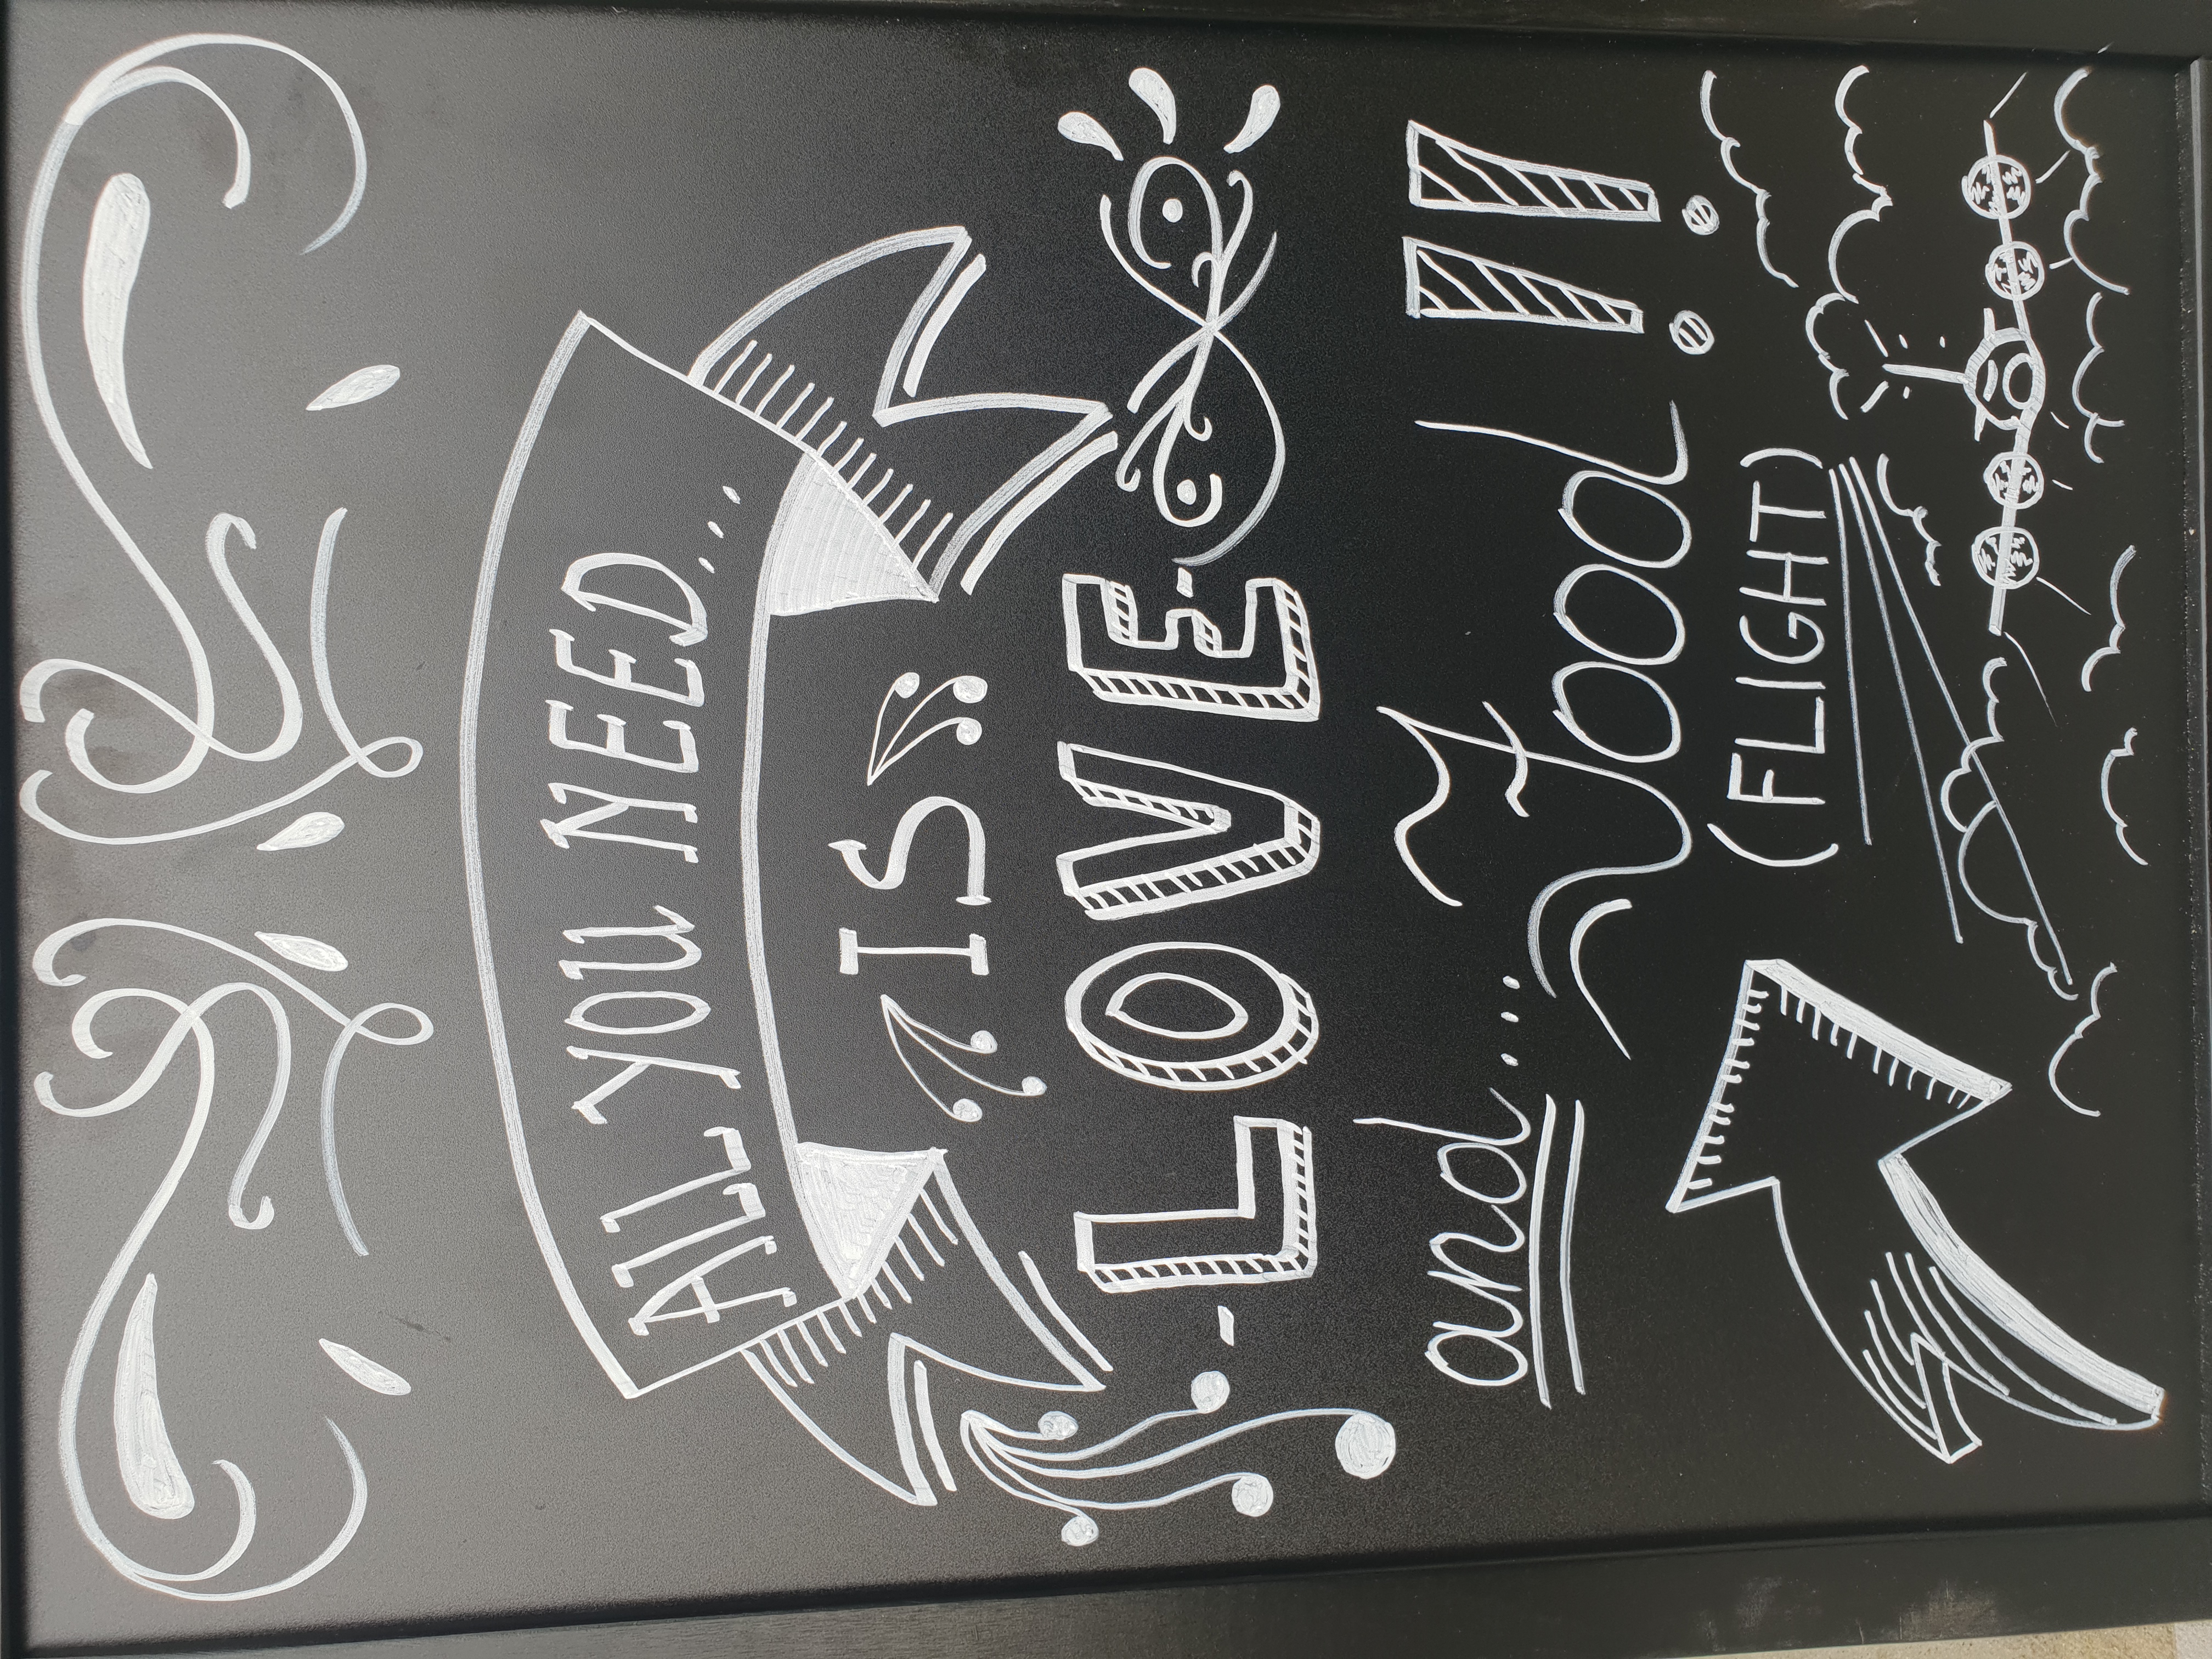 ALL YOU NEED...
IS
-LOVE-
and... Food!!
(FLIGHT)